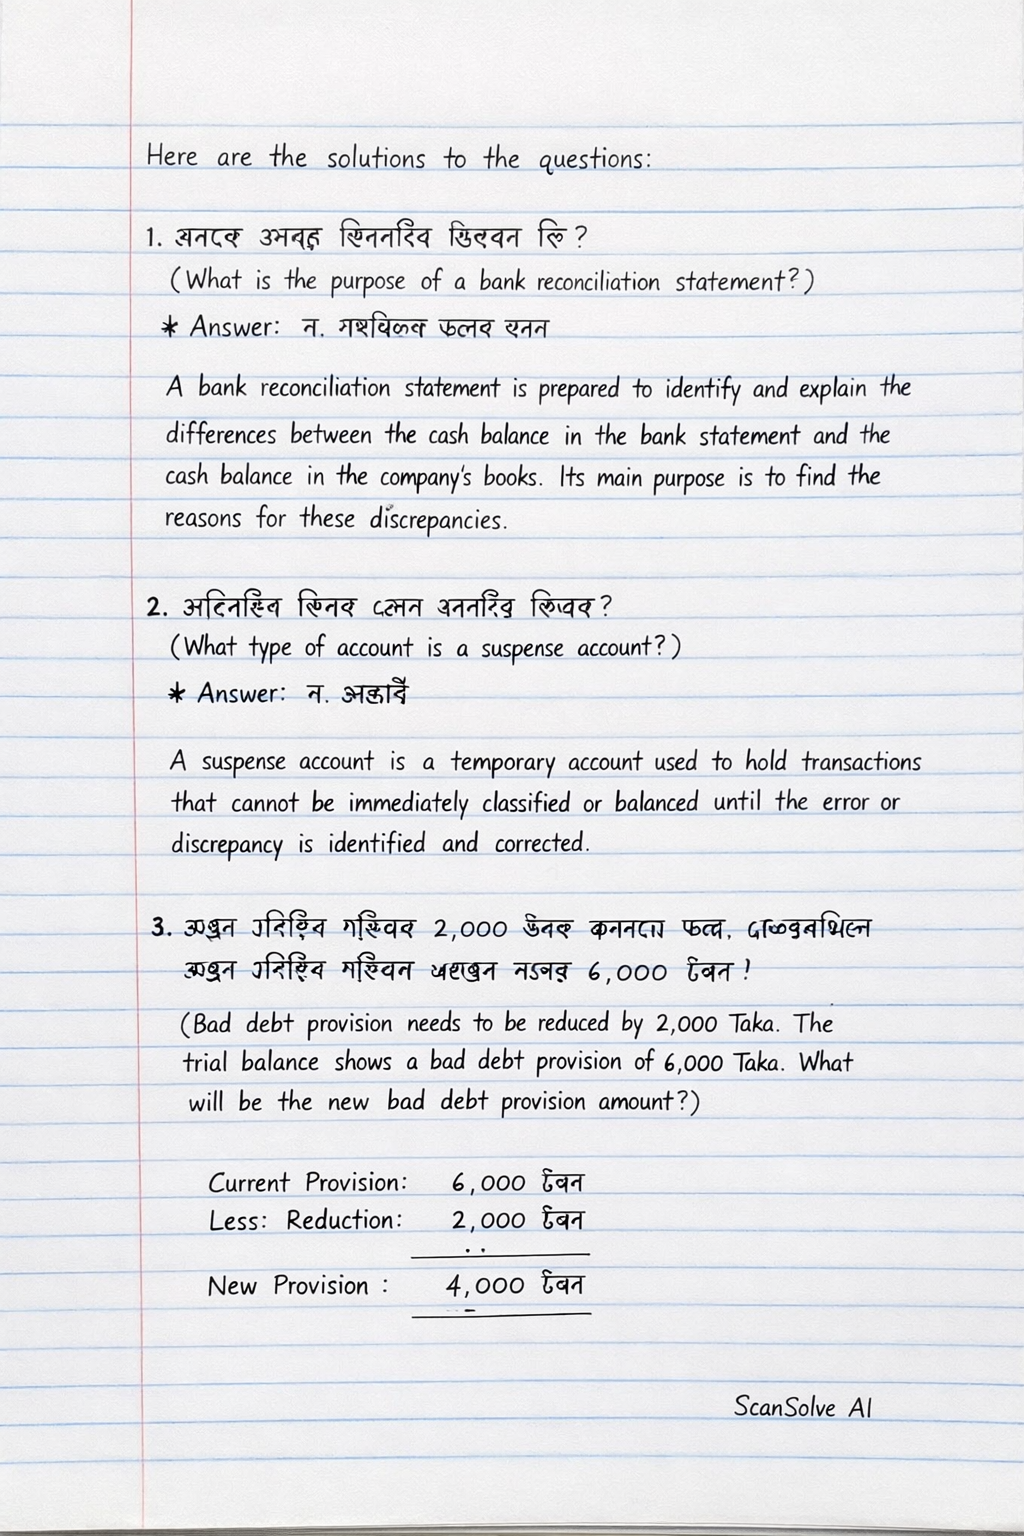 Here are the solutions to the questions:
1.
(What is the purpose of a bank reconciliation statement?)
* Answer: न.
A bank reconciliation statement is prepared to identify and explain the
differences between the cash balance in the bank statement and the
cash balance in the company's books. Its main purpose is to find the
reasons for these discrepancies.
2.
(What type of account is a suspense account?)
* Answer: न.
A suspense account is a temporary account used to hold transactions
that cannot be immediately classified or balanced until the error or
discrepancy is identified and corrected.
3. 2,000
6,000
(Bad debt provision needs to be reduced by 2,000 Taka. The
trial balance shows a bad debt provision of 6,000 Taka. What
will be the new bad debt provision amount?)
Current Provision: 6,000
Less: Reduction: 2,000
New Provision : 4,000
ScanSolve AI